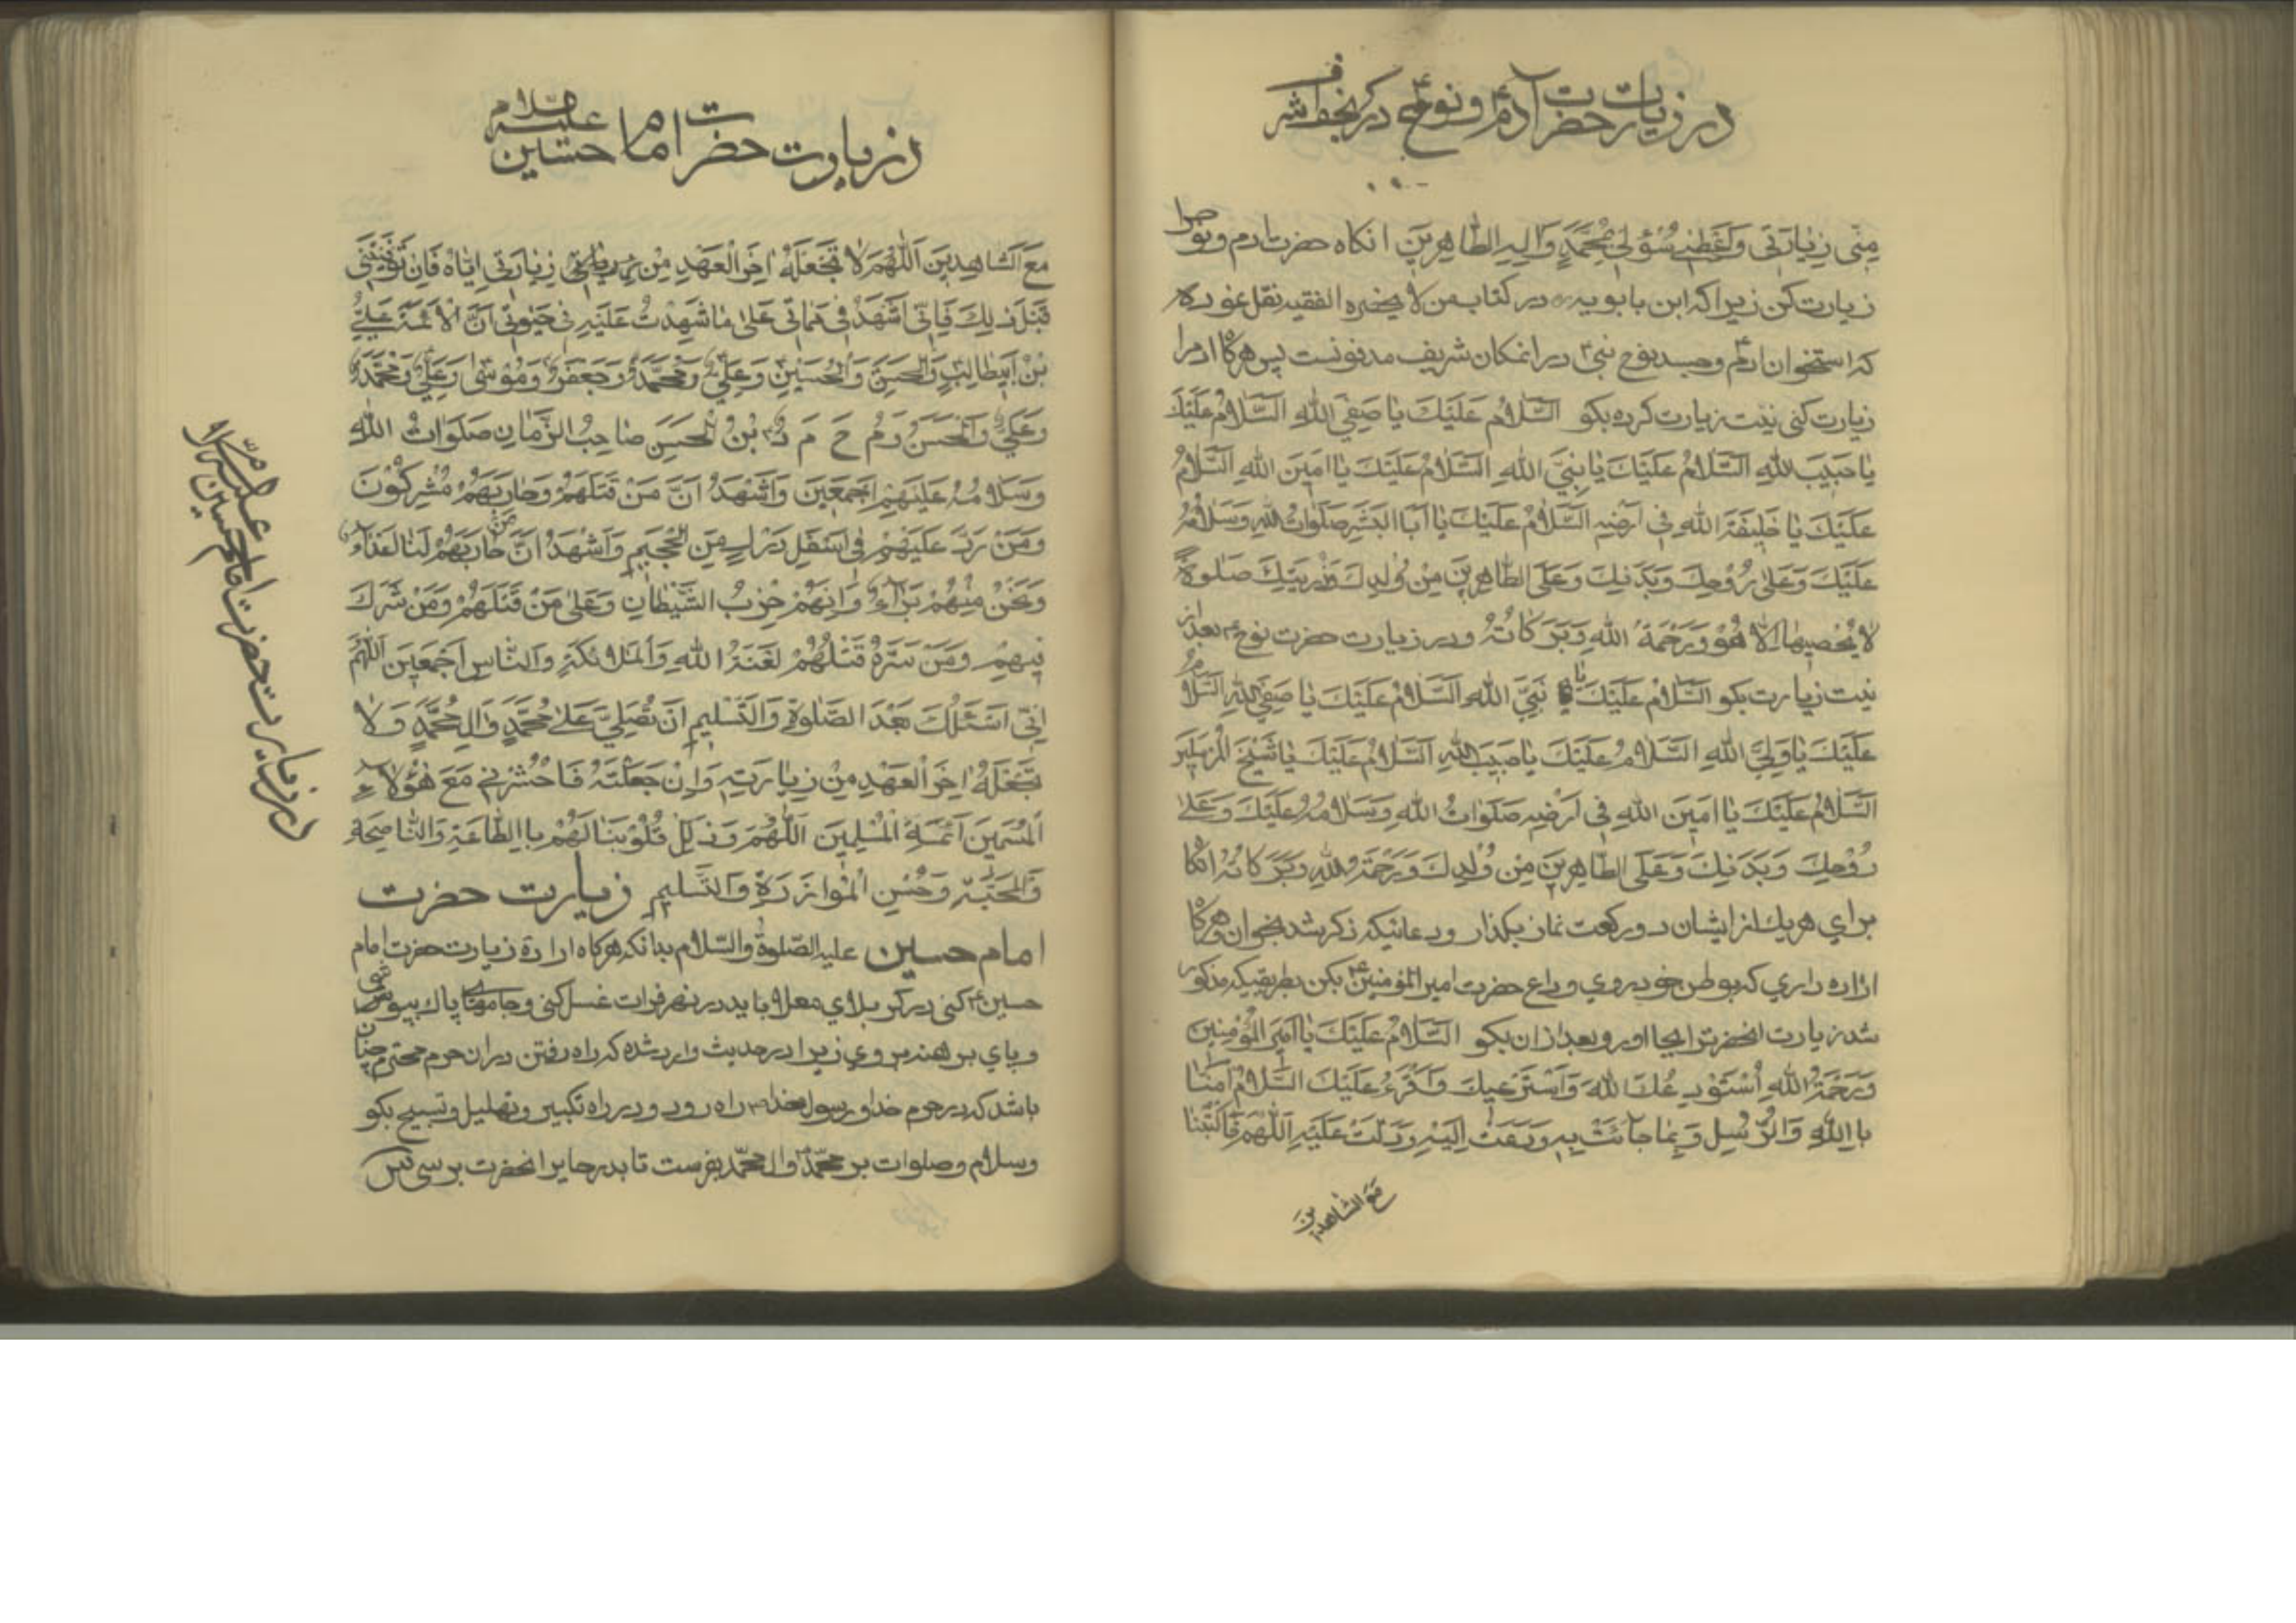 در زیارت حضرت آدم و نوح در نجف اشرف
مِنّی زِیٰارَتی وَاَعْطِنی سُؤلی بِمُحَمَّدٍ وَالِهِ الطّاهِرینَ انکاه حضرت ادم و نوح را
زیارت کن زیرا که ابن بابویه در کتاب من لا یحضره الفقیه نقل نموده
که استخوان ادم و جسد نوح نبی در انمکان شریف مدفونست پس هرکاه ادم را
زیارت کنی نیت زیارت کرده بکو اَلسَّلامُ عَلَیْكَ یا صَفِیَ اللهِ اَلسَّلامُ عَلَیْكَ
یا حَبیبَ اللهِ اَلسَّلامُ عَلَیْكَ یا نَبِیَّ اللهِ اَلسَّلامُ عَلَیْكَ یا اَمینَ اللهِ اَلسَّلامُ
عَلَیْكَ یا خَلیفَةَ اللهِ فی اَرْضِهِ اَلسَّلامُ عَلَیْكَ یا اَبَا الْبَشَرِ صَلَواتُ اللهِ وَسَلامُهُ
عَلَیْكَ وَعَلی رُوْحِكَ وَبَدَنِكَ وَعَلَی الطّاهِرینَ مِنْ وُلْدِكَ وَذُرِّیَتِكَ صَلوةً
لا یُحْصیها اِلّا هُوَ وَرَحْمَةُ اللهِ وَبَرَکاتُهُ ودر زیارت حضرت نوح بعد از
نیت زیارت بکو اَلسَّلامُ عَلَیْكَ یا نَبِیَّ اللهِ اَلسَّلامُ عَلَیْكَ یا صَفِیَ اللهِ اَلسَّلامُ
عَلَیْكَ یا وَلِیَّ اللهِ اَلسَّلامُ عَلَیْكَ یا حَبیبَ اللهِ اَلسَّلامُ عَلَیْكَ یا شَیْخَ الْمُرْسَلینَ
اَلسَّلامُ عَلَیْكَ یا اَمینَ اللهِ فی اَرْضِهِ صَلَواتُ اللهِ وَسَلامُهُ عَلَیْكَ وَعَلی
رُوْحِكَ وَبَدَنِكَ وَعَلَی الطّاهِرینَ مِنْ وُلْدِكَ وَرَحْمَةُ اللهِ وَبَرَکاتُهُ انکاه
برای هریك از ایشان دو رکعت نماز بکذار ودعائیکه ذکر شد بخوان وهرکاه
اراده داری که بوطن خود روی وداع حضرت امیر المؤمنین بکن بطریقیکه مذکور
شد زیارت انحضرترا بجا اور وبعد ازان بکو اَلسَّلامُ عَلَیْكَ یا اَمیرَ الْمُؤْمِنینَ
وَرَحْمَةُ اللهِ اَسْتَوْدِعُكَ اللهَ وَاَسْتَرْعیكَ وَاَقْرَءُ عَلَیْكَ السَّلامُ امَنّا
بِاللهِ وَالرُّسُلِ وَبِما جائَتْ بِهِ وَدَعَتْ اِلَیْهِ وَدَلَّتْ عَلَیْهِ اَللّهُمَّ فَاکْتُبْنا
مَعَ الشاهدین
در زیارت حضرت امام حسین علیه السلام
مَعَ الشّاهِدینَ اَللّهُمَّ لا تَجْعَلْهُ اخِرَ الْعَهْدِ مِنْ زِیارَتی اِیّاهُ فَاِنْ تَوَفَّیْتَنی
قَبْلَ ذلِكَ فَاِنّی اَشْهَدُ فی مَماتی عَلی ما شَهِدْتُ عَلَیْهِ فی حَیوتی اَنَّ الْاَئِمَّةَ عَلِیُّ
بْنُ اَبیطالِبٍ وَالْحَسَنُ وَالْحُسَیْنُ وَعَلِیٌّ وَمُحَمَّدٌ وَجَعْفَرٌ وَمُوْسی وَعَلِیٌّ وَمُحَمَّدٌ
وَعَلِیٌّ وَالْحَسَنُ وَ م ح م د بْنُ الْحَسَنِ صاحِبُ الزَّمانِ صَلَواتُ اللهِ
وَسَلامُهُ عَلَیْهِمْ اَجْمَعینَ وَاَشْهَدُ اَنَّ مَنْ قَتَلَهُمْ وَحارَبَهُمْ مُشْرِکُوْنَ
وَمَنْ رَدَّ عَلَیْهِمْ فی اَسْفَلِ دَرَكٍ مِنَ الْجَحیمِ وَاَشْهَدُ اَنَّ مَنْ حارَبَهُمْ لَنا اَعْداءٌ
وَنَحْنُ مِنْهُمْ بَراءٌ وَاَنَّهُمْ حِزْبُ الشَّیْطانِ وَعَلی مَنْ قَتَلَهُمْ وَمَنْ شَرِكَ
فیهِمْ وَمَنْ سَرَّهُ قَتْلُهُمْ لَعْنَةُ اللهِ وَالْمَلائِکَةِ وَالنّاسِ اَجْمَعینَ اَللّهُمَّ
اِنّی اَسْئَلُكَ بَعْدَ الصَّلوةِ وَالتَّسْلیمِ اَنْ تُصَلِّیَ عَلی مُحَمَّدٍ وَالِ مُحَمَّدٍ وَلا
تَجْعَلْهُ اخِرَ الْعَهْدِ مِنْ زِیارَتِهِ وَاِنْ جَعَلْتَهُ فَاحْشُرْنی مَعَ هؤُلاءِ
الْمُسَمّینَ اَئِمَّةِ الْمُسْلِمینَ اَللّهُمَّ وَذَلِّلْ قُلُوْبَنا لَهُمْ بِاالطّاعَةِ وَالْمُناصِحَةِ
وَالْمَحَبَّةِ وَحُسْنِ الْمُوازَرَةِ وَالتَّسْلیمِ زیارت حضرت
امام حسین علیه الصّلوة والسّلام بدانکه هرکاه اراده زیارت حضرت امام
حسین کنی در کربلای معلا باید در نهر فرات غسل کنی وجامهای پاك بپوشی
وپای برهنه روی زیرا در حدیث وارد شده که راه رفتن دران حرم محترم چنان
باشد که در حرم خدا ورسول خدا راه رود ودر راه تکبیر وتهلیل وتسبیح بکو
وسلام وصلوات بر محمّد وال محمّد بفرست تا بدر حایر انحضرت برسی پس
در زیارت حضرت امام حسین علیه السلام